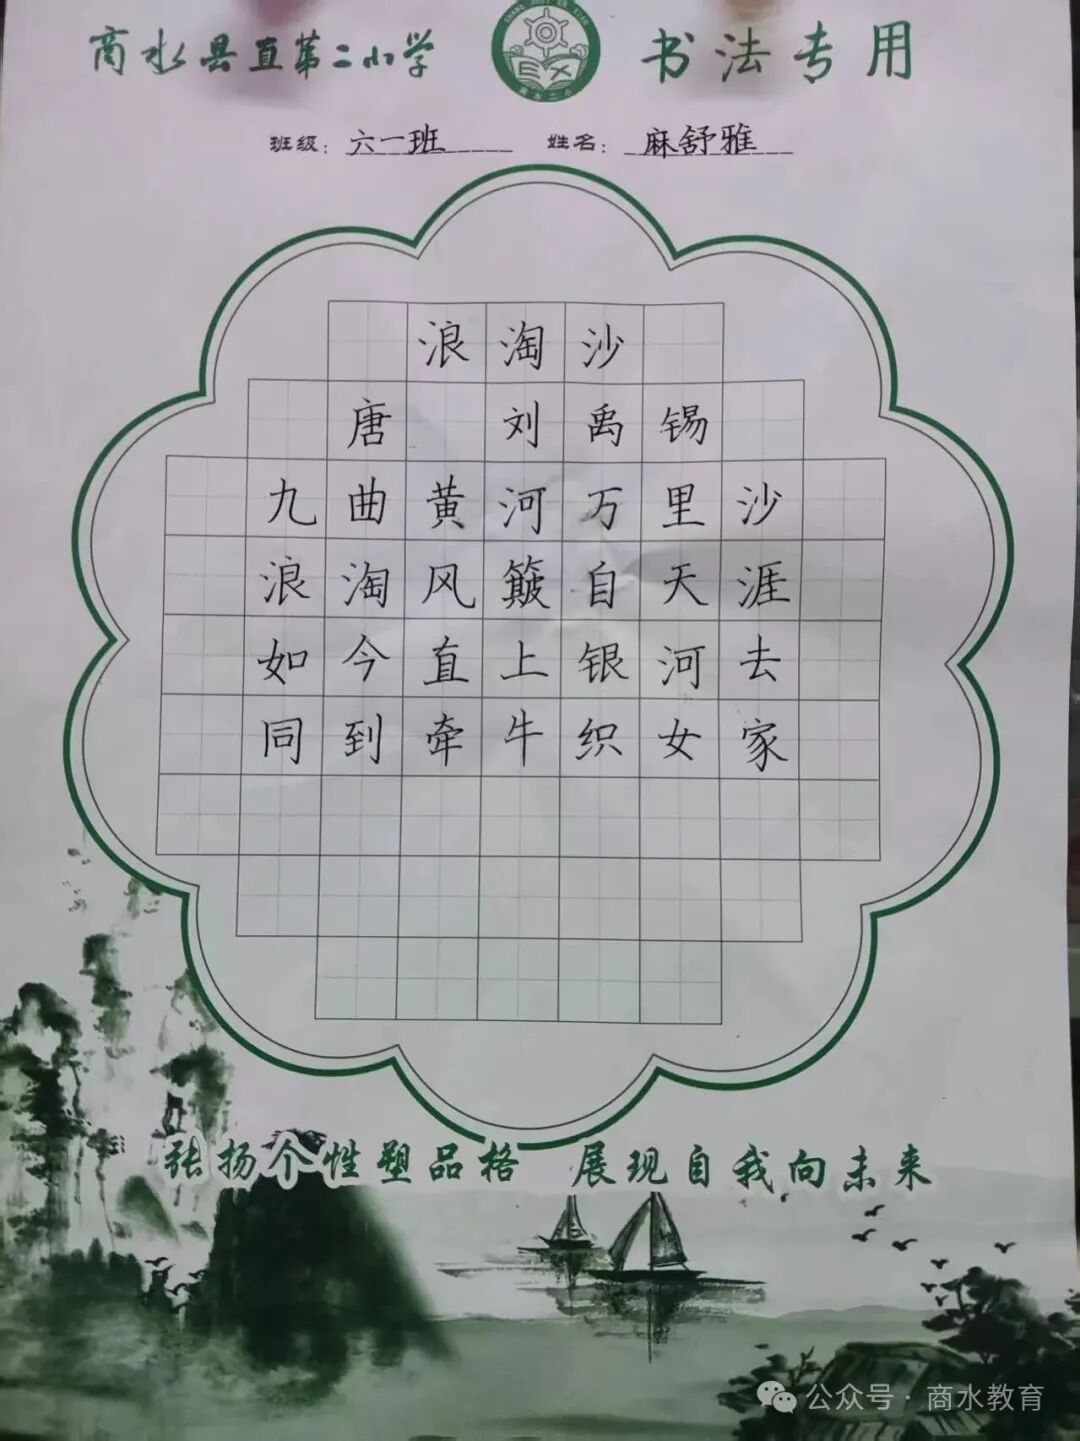 商水县直第二小学 书法专用
EX
商水二小
班级：六一班 姓名：麻舒雅
浪淘沙
唐 刘禹锡
九曲黄河万里沙
浪淘风簸自天涯
如今直上银河去
同到牵牛织女家
张扬个性塑品格 展现自我向未来
公众号·商水教育